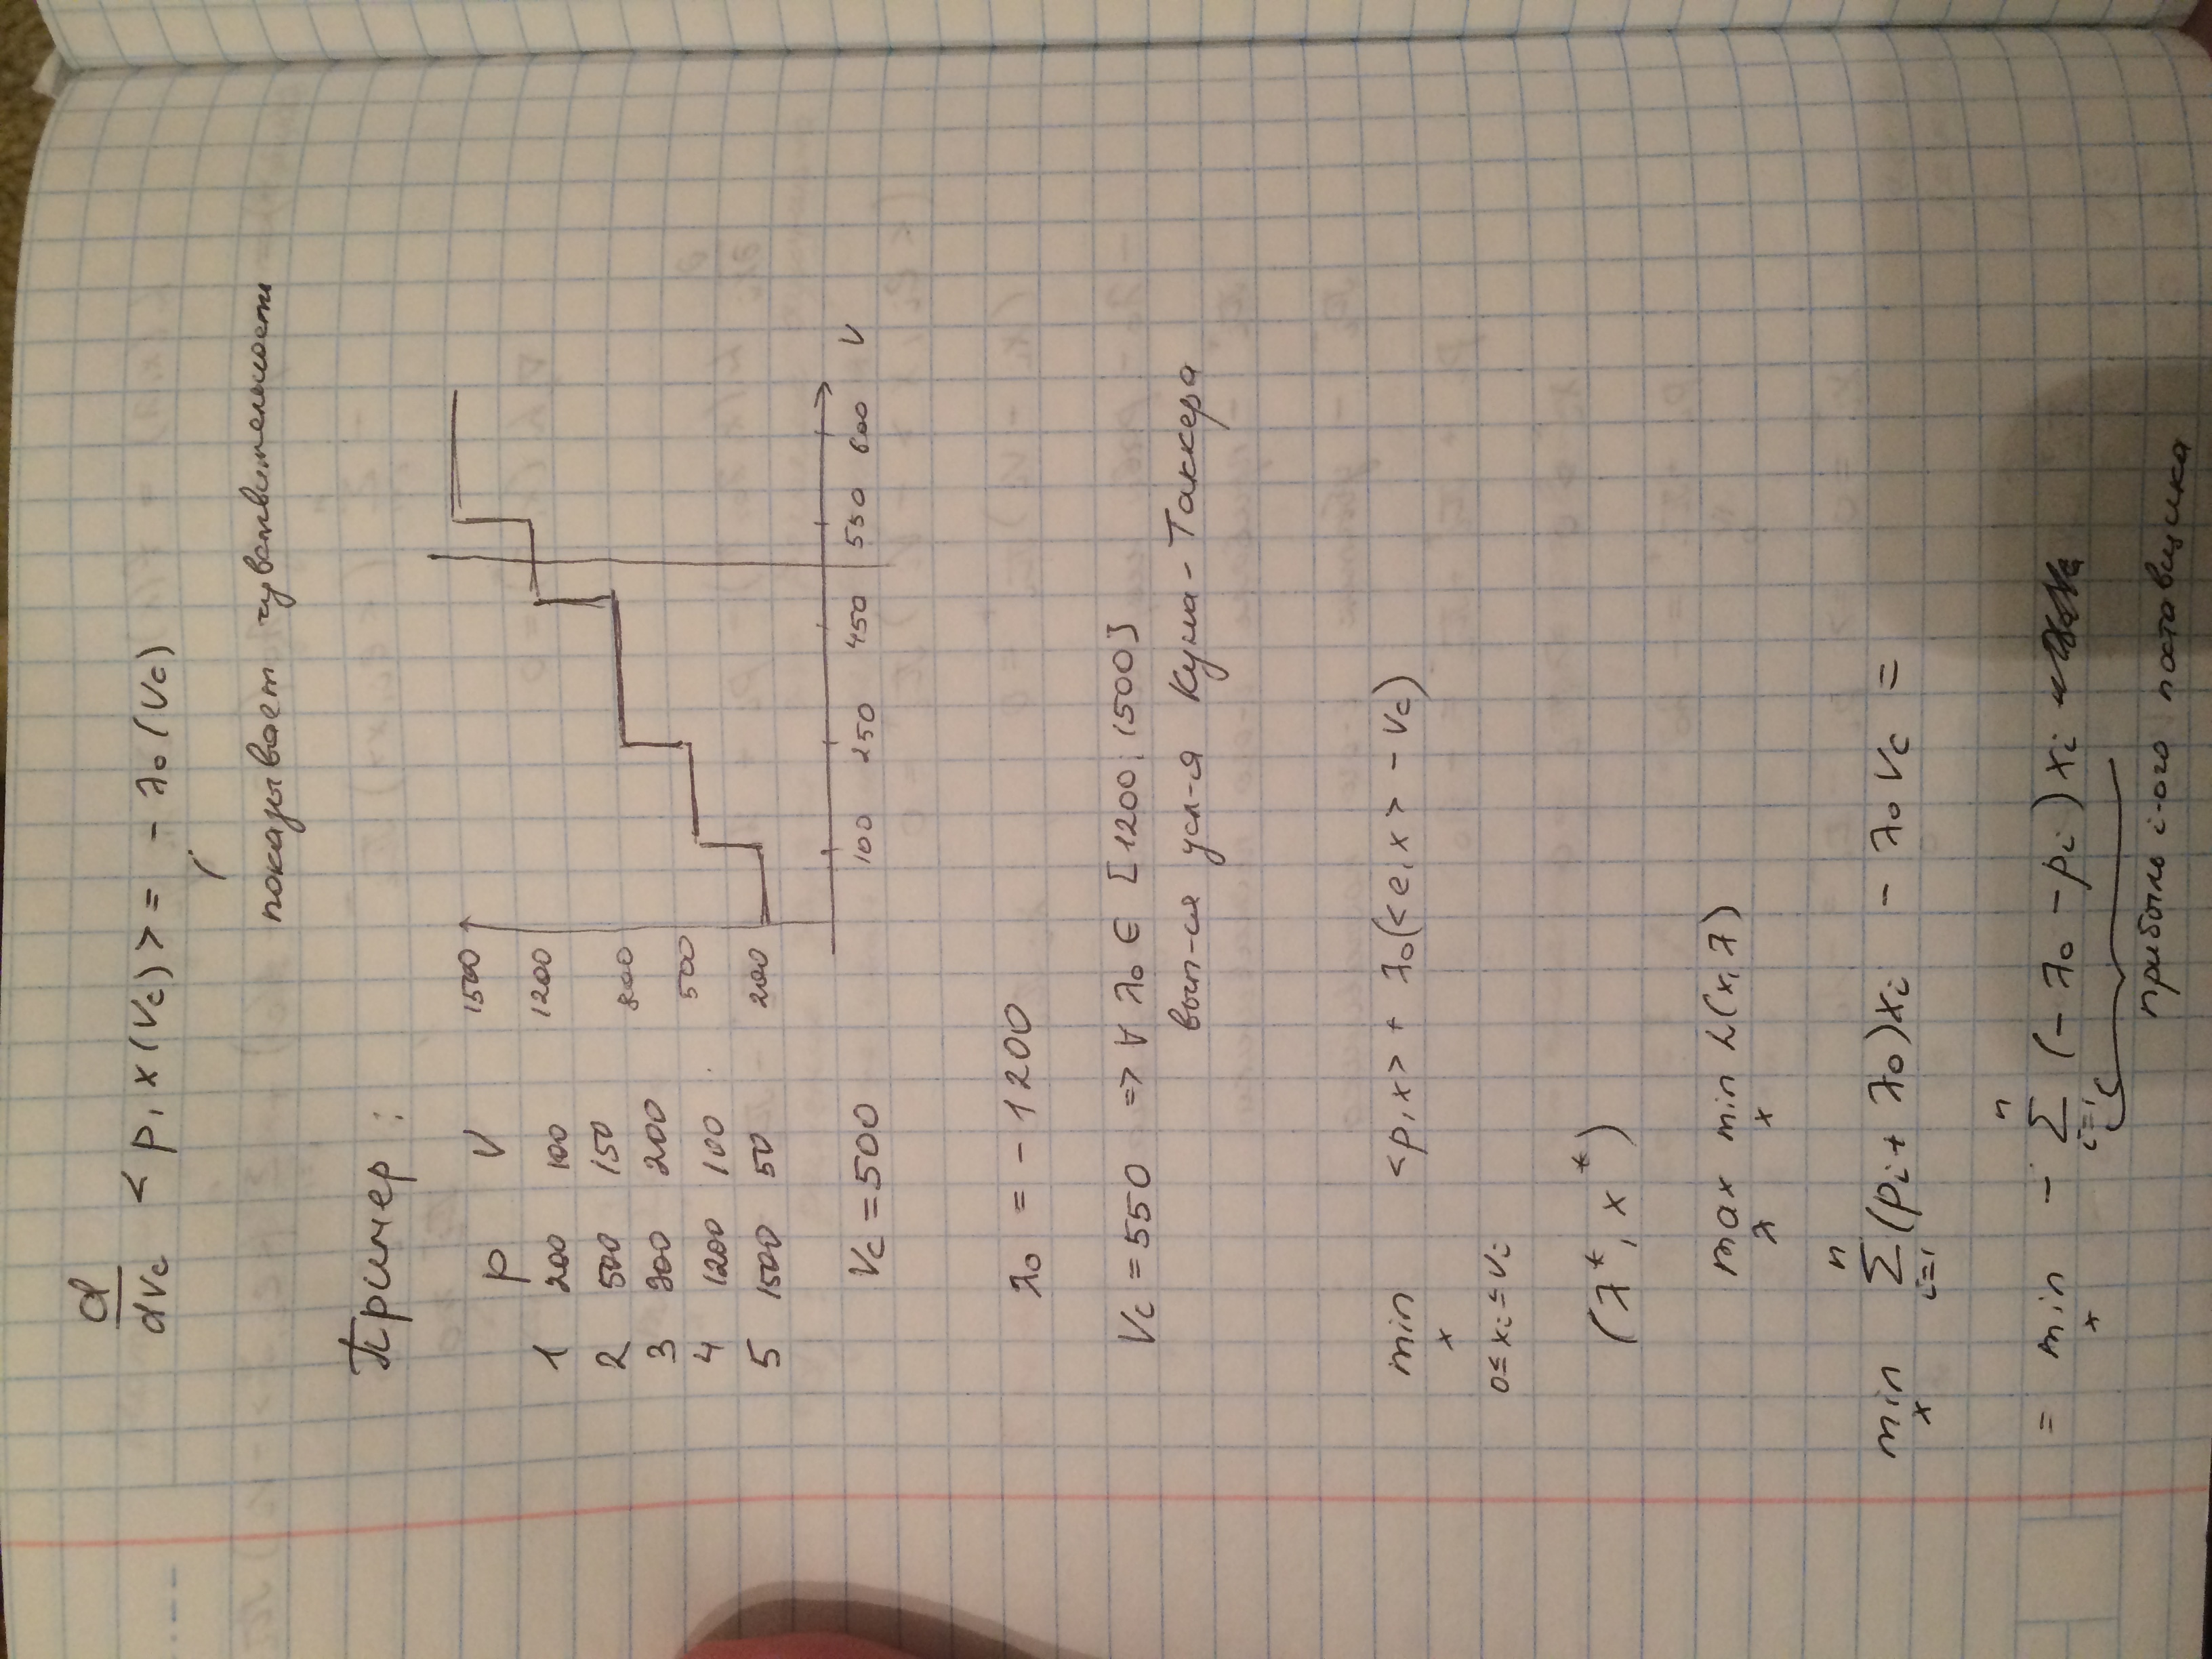 d/dVc < p, x(Vc) > = - λ0(Vc)
показывает чувствительности
Пример:
p V
1 200 100
2 500 150
3 800 200
4 1200 100
5 1500 50
1500
1200
800
500
200
100 250 450 550 600 V
Vc = 500
λ0 = - 1200
Vc = 550 => ∀ λ0 ∈ [1200; 1500]
вып-ся усл-я Куна-Таккера
min <p, x> + λ0(<e, x> - Vc)
x
0≤xi≤Vi
(λ*, x*)
max min L(x, λ)
λ x
min ∑ (pi + λ0)xi - λ0Vc =
x i=1 n
= min - ∑ (- λ0 - pi)xi
x i=1 n
прибыль i-ого поставщика